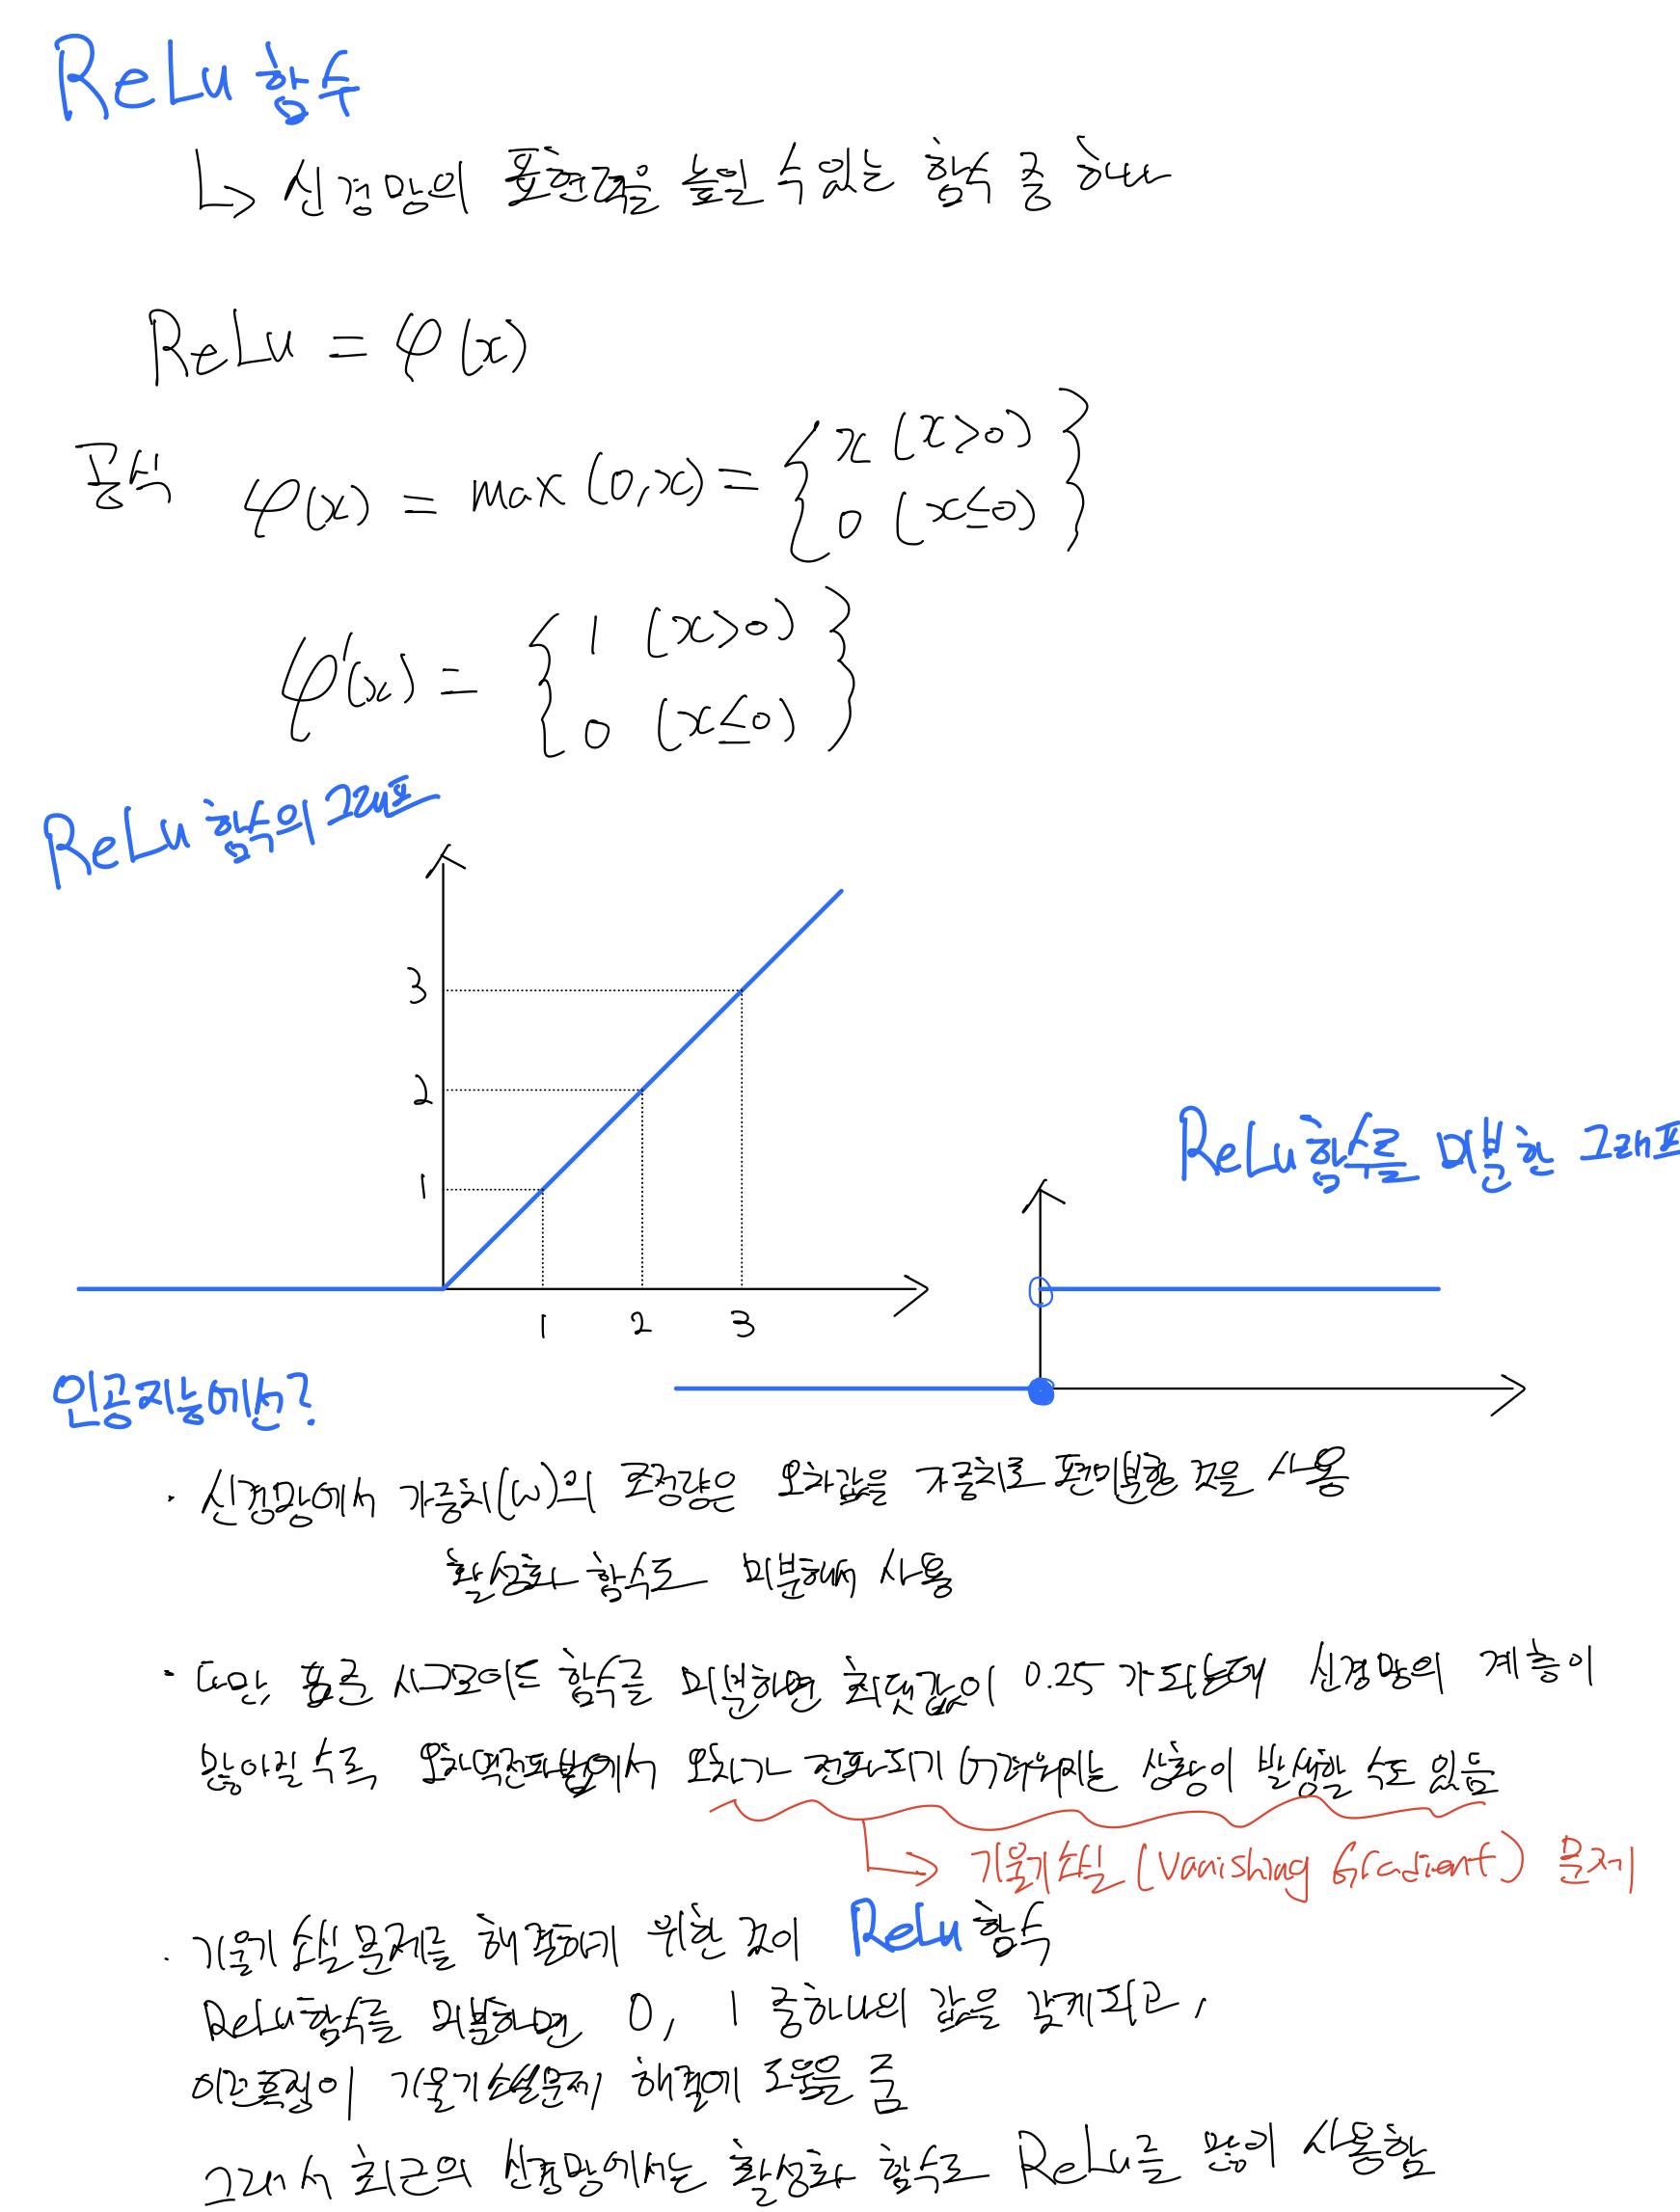 ReLu 함수
↳ 신경망의 표현력을 높일 수 있는 함수 중 하나
ReLu = φ(x)
공식 φ(x) = max(0,x) = { x (x>0)
0 (x≤0) }
φ'(x) = { 1 (x>0)
0 (x≤0) }
ReLu 함수의 그래프
3
2
1
1 2 3
ReLu함수를 미분한 그래프
인공지능에선?
· 신경망에서 가중치(w)의 조정량은 오차값을 가중치로 편미분한 것을 사용
활성화 함수도 미분해서 사용
· 다만, 표준 시그모이드 함수를 미분하면 최댓값이 0.25가 되는데 신경망의 계층이
많아질수록 오차역전파법에서 오차가 전파되기 어려워지는 상황이 발생할 수도 있음
→ 기울기소실(Vanishing Gradient) 문제
· 기울기 소실 문제를 해결하기 위한 것이 ReLu 함수
ReLu함수를 미분하면 0, 1 중하나의 값은 갖게되고,
이런 특징이 기울기소실문제 해결에 도움을 줌
그래서 최근의 신경망에서는 활성화 함수로 ReLu를 많이 사용함